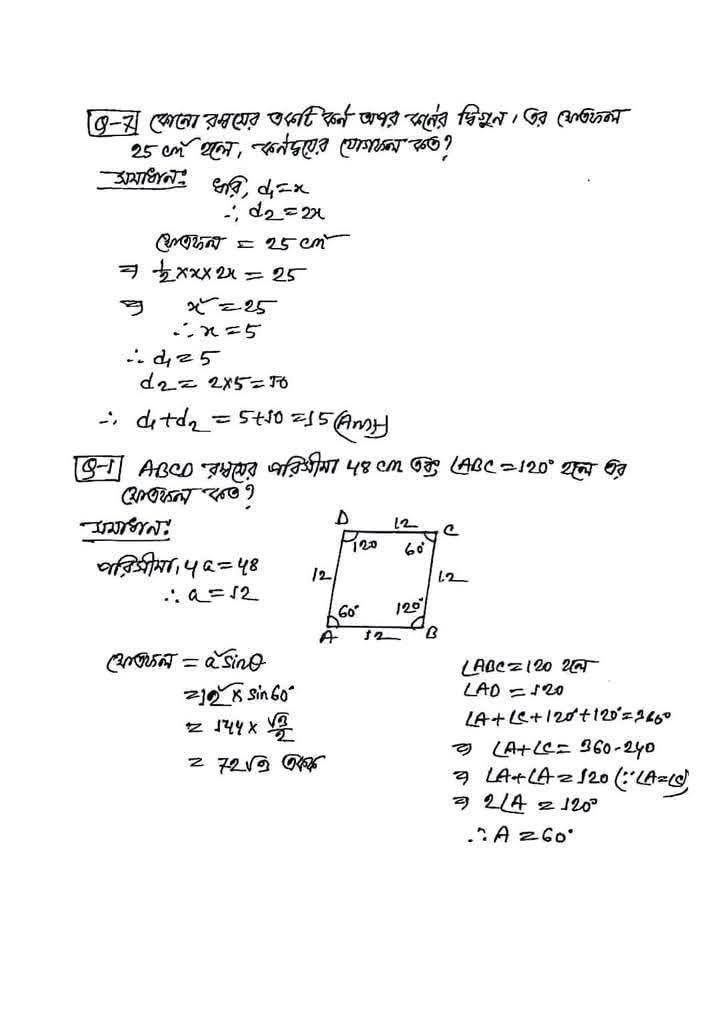 Q-7 কোনো রম্বসের একটি কর্ন অপর কর্নের দ্বিগুন। এর ক্ষেত্রফল
25 cm² হলে, কর্নদ্বয়ের যোগফল কত?
সমাধান:
ধরি, d₁=x
∴ d₂=2x
ক্ষেত্রফল = 25 cm²
⇒ 1/2 × x × 2x = 25
⇒ x² = 25
∴ x = 5
∴ d₁ = 5
d₂ = 2×5 = 10
∴ d₁+d₂ = 5+10 = 15 (Ans)
Q-1 ABCD রম্বসের পরিসীমা 48 cm এবং ∠ABC = 120° হলে এর
ক্ষেত্রফল কত?
সমাধান:
পরিসীমা, 4a = 48
∴ a = 12
D 12 C
120 60°
12 12
60° 120°
A 12 B
ক্ষেত্রফল = a² sinθ
= 12² × sin60°
= 144 × √3/2
= 72√3 একক
∠ABC = 120 হলে
∠AD = 120
∠A+∠C+120°+120° = 360°
⇒ ∠A+∠C = 360-240
⇒ ∠A+∠A = 120 (∵ ∠A=∠C)
⇒ 2∠A = 120°
∴ A = 60°